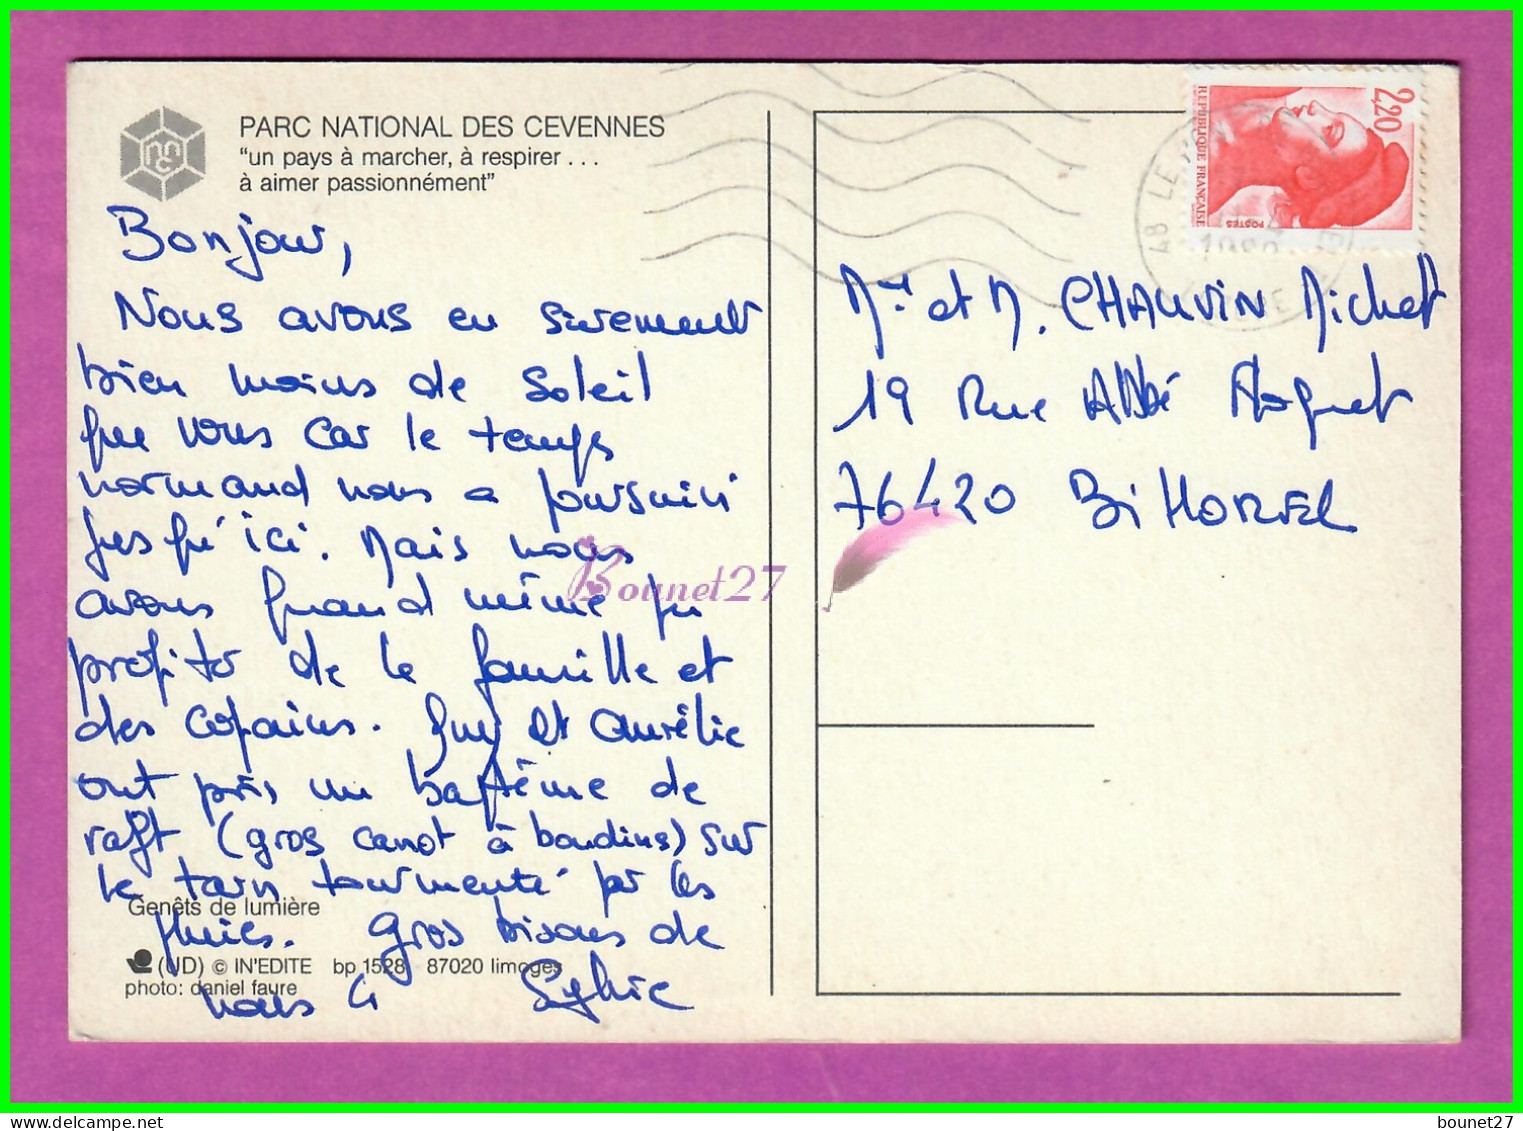 PARC NATIONAL DES CEVENNES
"un pays à marcher, à respirer . . .
à aimer passionnément"
Bonjour,
Nous avons eu surement
bien moins de soleil
que vous car le temps
normand nous a poursuivi
jusqu'ici. Mais nous
avons quand même pu
profiter de la famille et
des copains. Guy et Aurélie
ont pris un baptême de
raft (gros canot à boudins) sur
le tarn tourmenté par les
pluies. Gros bisous de
nous 4 Sylvie
Genêts de lumière
(UD) © IN'EDITE bp 1528 87020 limoges
photo: daniel faure
2,20
REPUBLIQUE FRANÇAISE
POSTES
48 LE
Me et M. CHAUVIN Michel
19 Rue Abbé
76420 BiHOREL
Bounet27
bounet27